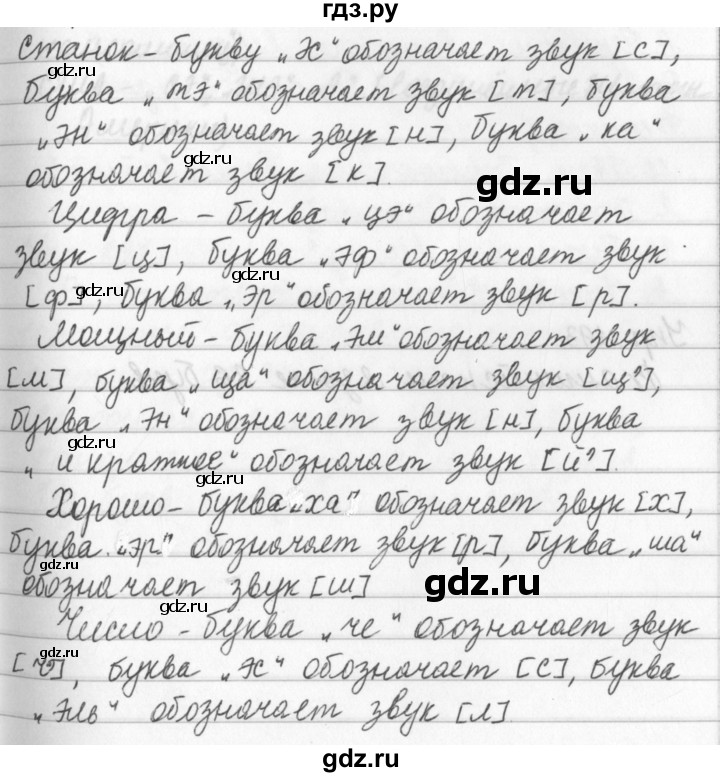 гдз.ру
Станок - букву „эс" обозначает звук [с],
буква „тэ" обозначает звук [т], буква
„эн" обозначает звук [н], буква „ка"
обозначает звук [к].
Цифра - буква „цэ" обозначает
звук [ц], буква „эф" обозначает звук
[ф], буква „эр" обозначает звук [р].
Мощный - буква „эм" обозначает звук
[м], буква „ща" обозначает звук [щ'],
буква „эн" обозначает звук [н], буква
„и краткое" обозначает звук [й'].
Хорошо - буква „ха" обозначает звук [х],
буква „эр" обозначает звук [р], буква „ша"
обозначает звук [ш]
Число - буква „че" обозначает звук
[ч'], буква „эс" обозначает [с], буква
„эль" обозначает звук [л].
gdz.ru
gdz.ru
gdz.ru
gdz.ru
gdz.ru
gdz.ru
gdz.ru
gdz.ru
gdz.ru
gdz.ru
gdz.ru
gdz.ru
gdz.ru
gdz.ru